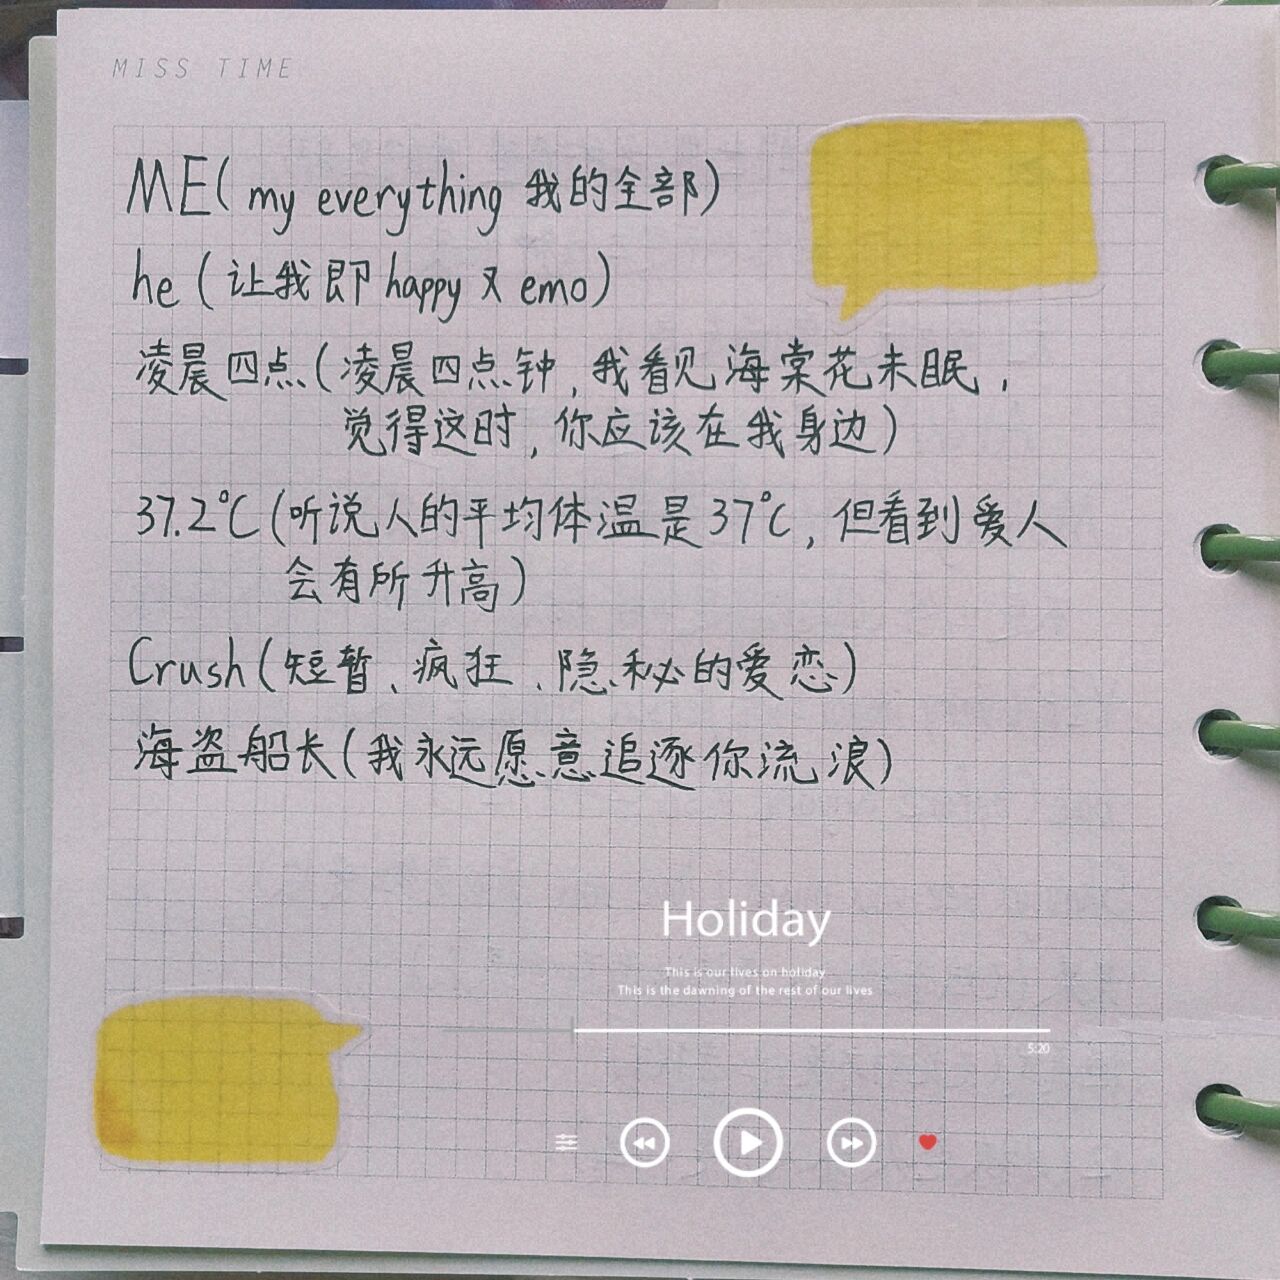 MISS TIME
ME(my everything 我的全部)
he(让我即happy又emo)
凌晨四点(凌晨四点钟,我看见海棠花未眠,
觉得这时,你应该在我身边)
37.2℃(听说人的平均体温是37℃,但看到爱人
会有所升高)
Crush(短暂、疯狂、隐秘的爱恋)
海盗船长(我永远愿意追逐你流浪)
Holiday
This is our lives on holiday
This is the dawning of the rest of our lives
5:20